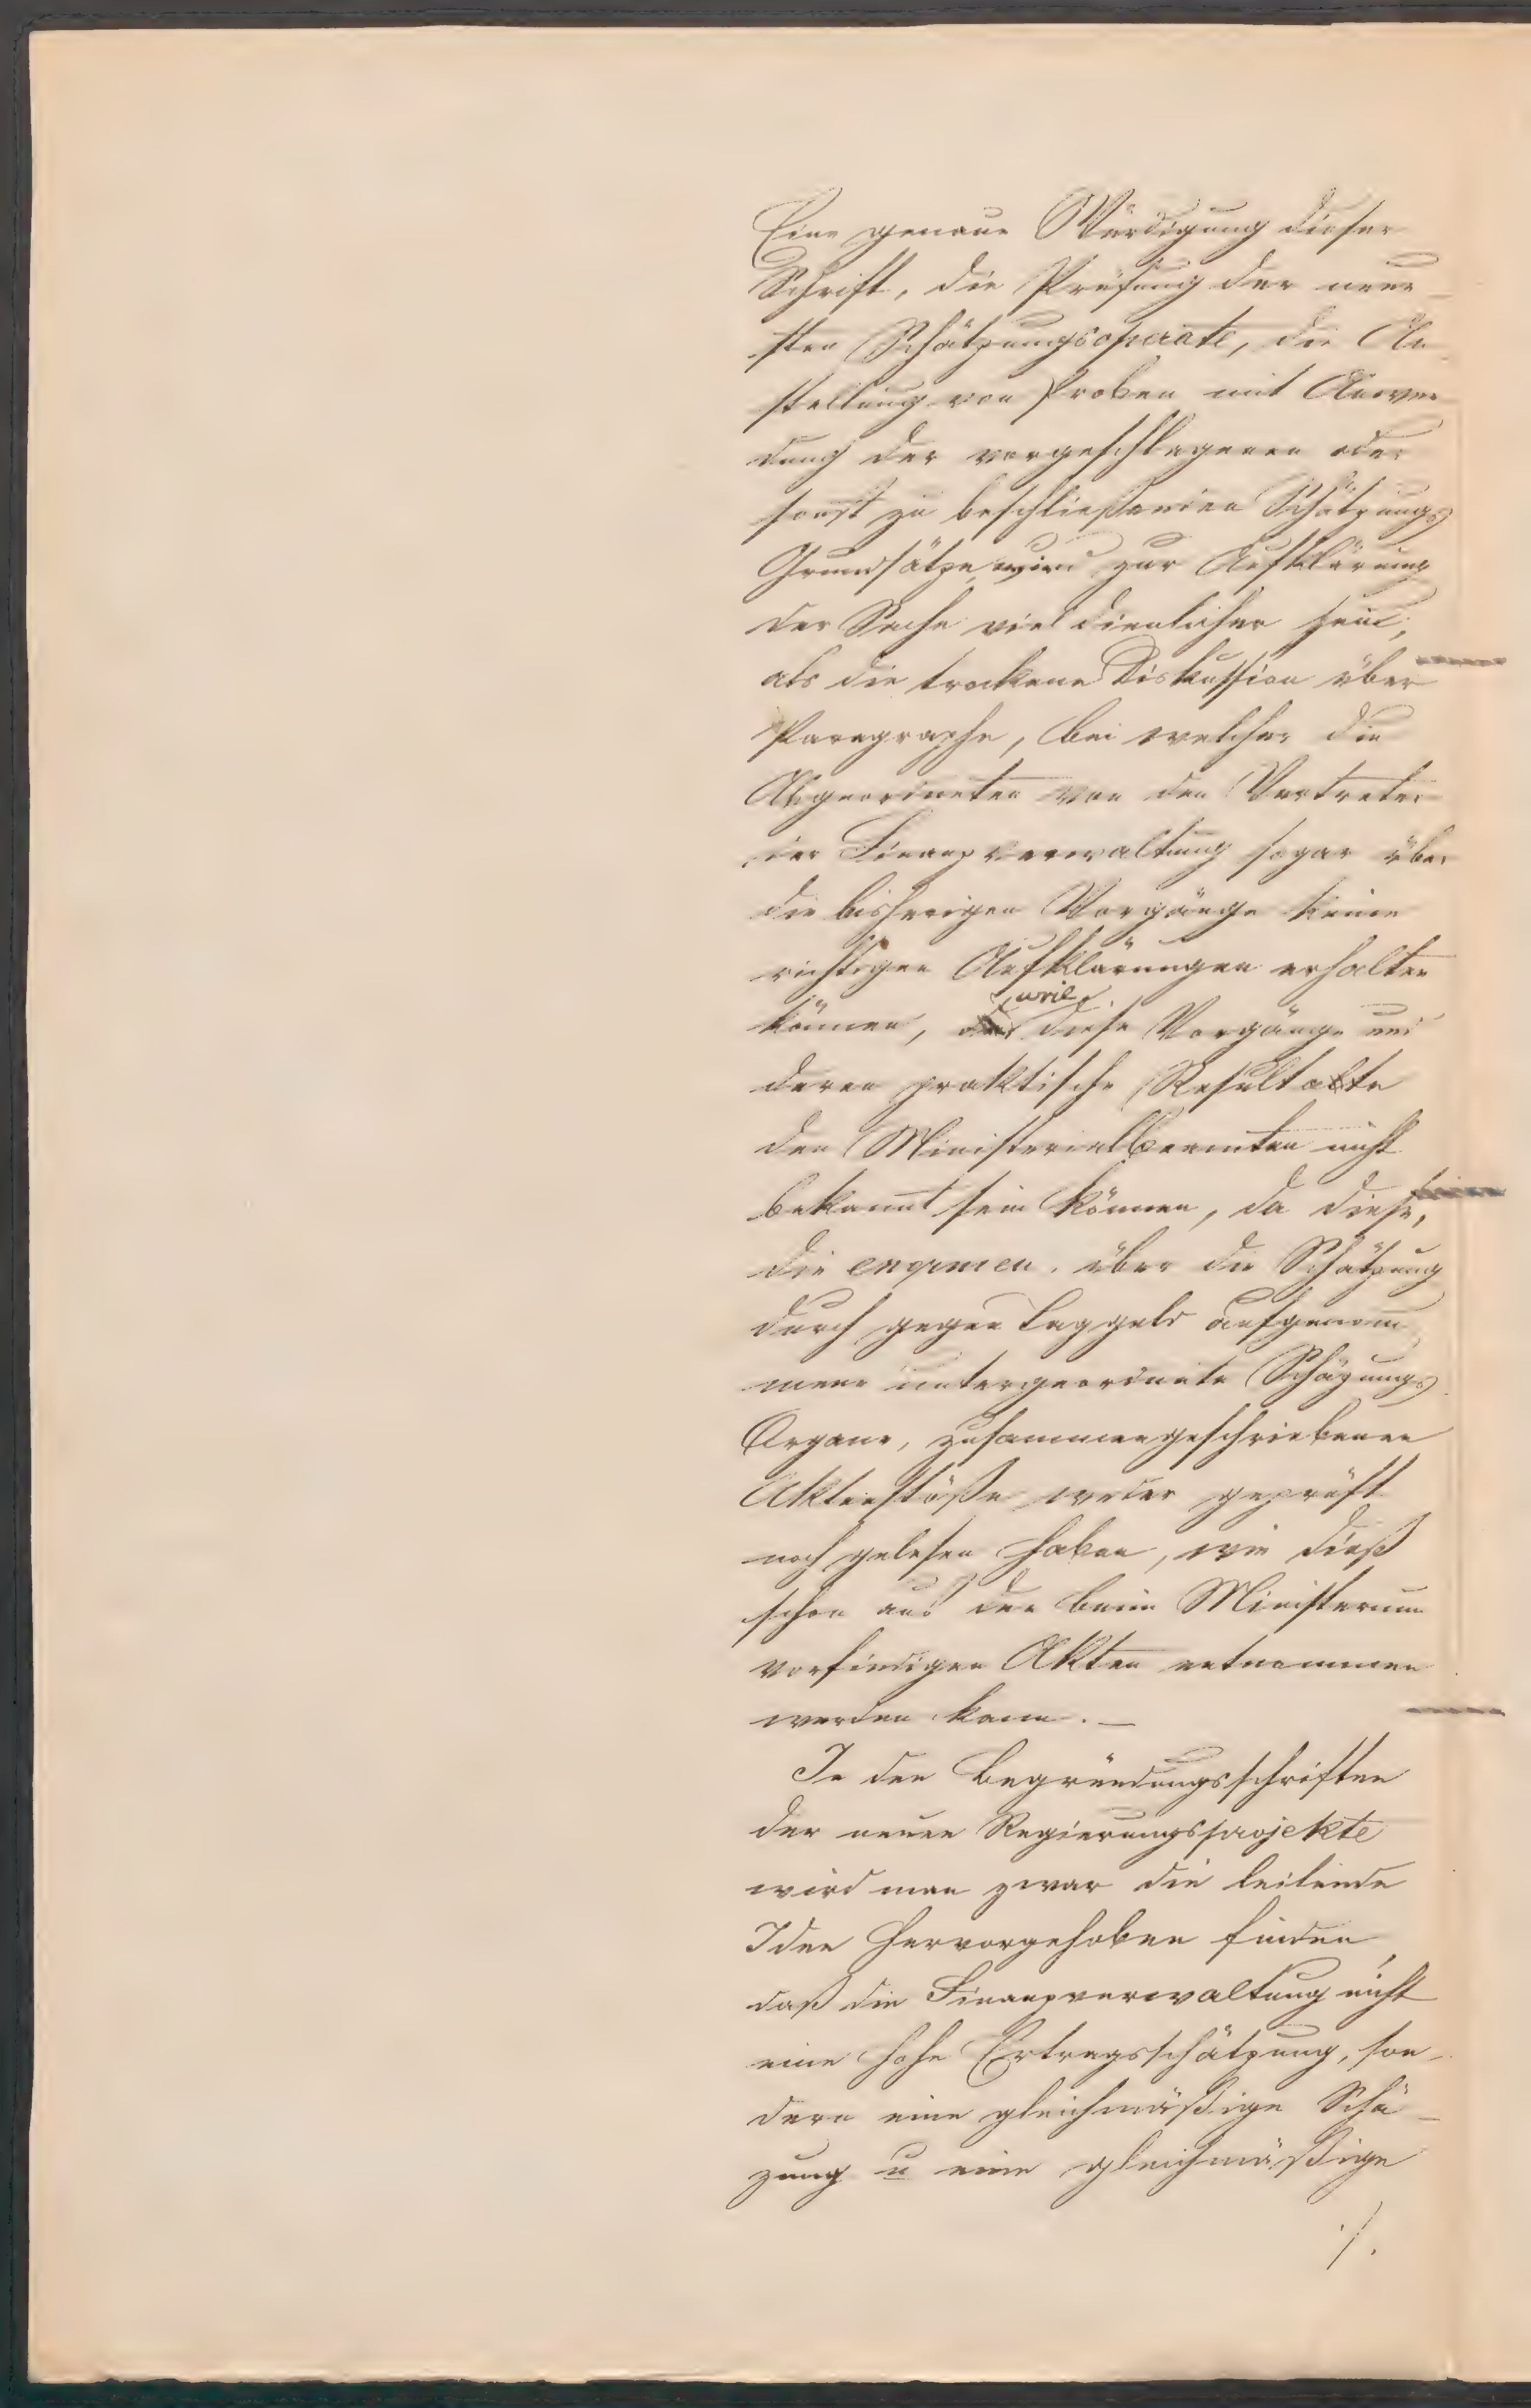 Eine genaue Würdigung dieser
Schrift, die Prüfung der neue-
sten Schätzungsoperate, die An-
stellung von Proben mit Anwen-
dung der vorgeschlagenen oder
sonst zu beschließenden Schätzungs
Grundsätze, wird zur Aufklärung
der Sache viel dienlicher sein,
als die trockene Diskussion über
Paragraphe, bei welcher die
Abgeordneten von den Vertreter
der Finanzverwaltung sogar über
die bisherigen Vorgänge keine
richtigen Aufklärungen erhalten
können, weil diese Vorgänge und
deren praktische Resultate
den Ministerialbeamten nicht
bekannt sein können, da diese,
die enormen, über die Schätzung
durch gegen Taggeld aufgenom-
mene untergeordnete Schäzungs
Organe, zusammengeschriebenen
Aktenstöße weder geprüft
noch gelesen haben, wie dieß
schon aus den beim Ministerium
vorfindigen Akten entnommen
werden kann. —
In den Begründungsschriften
der neuen Regierungsprojekte
wird man zwar die leitende
Idee hervorgehoben finden,
daß die Finanzverwaltung nicht
eine hohe Ertragsschätzung, son-
dern eine gleichmäßige Schä-
zung u eine gleichmäßige
./.